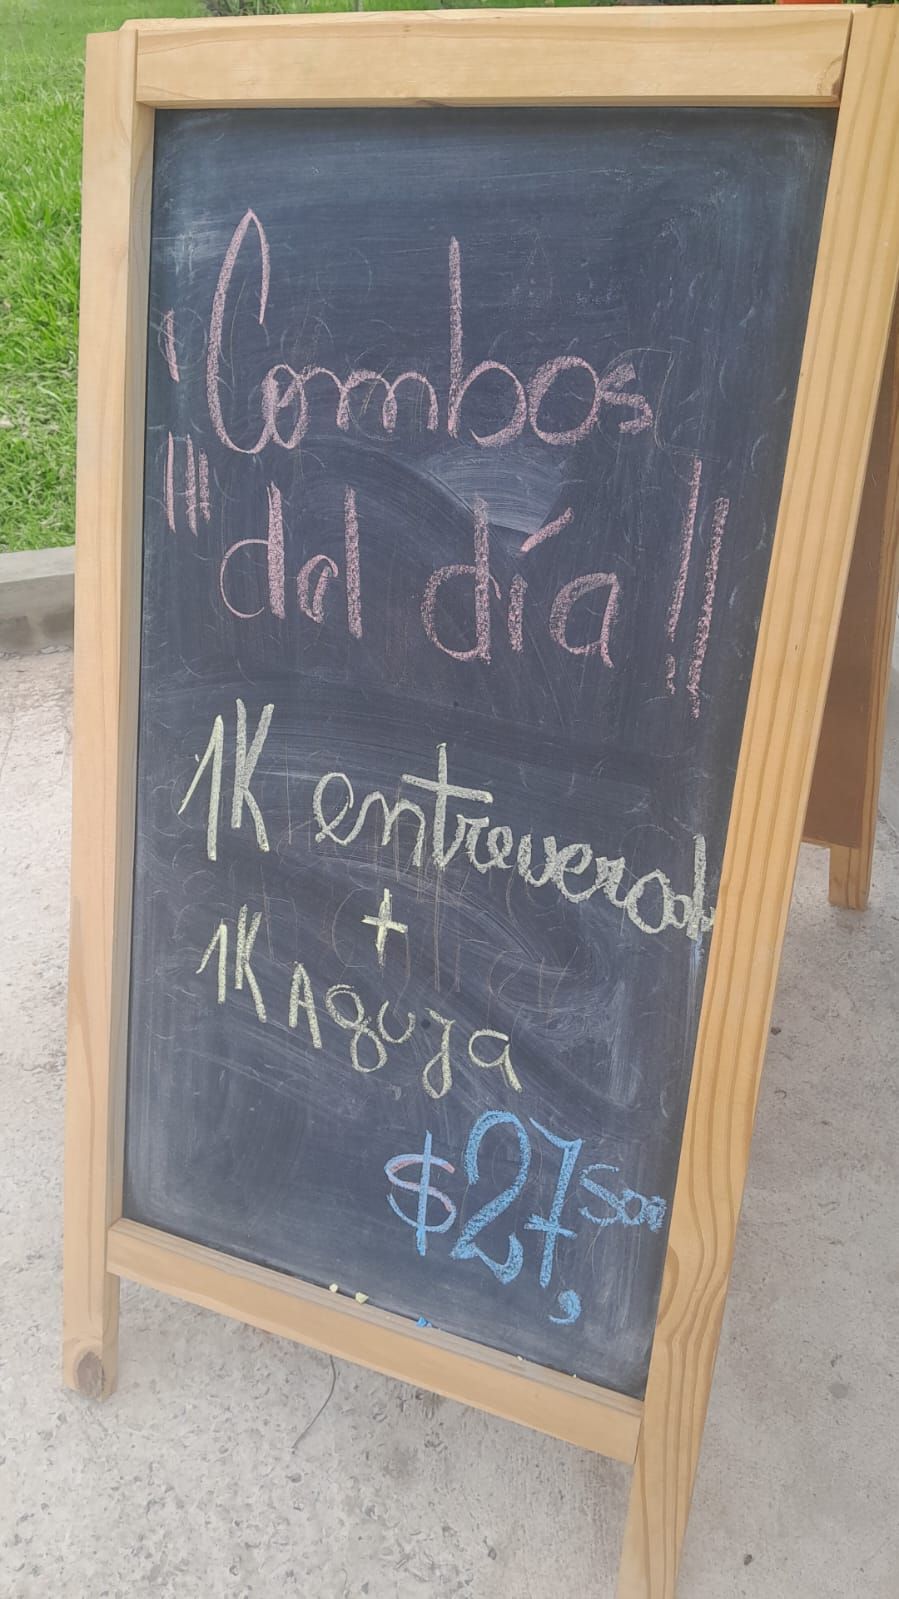 "Combos
"" del día !!
1K entreverado
+
1K Aguja
$27,500